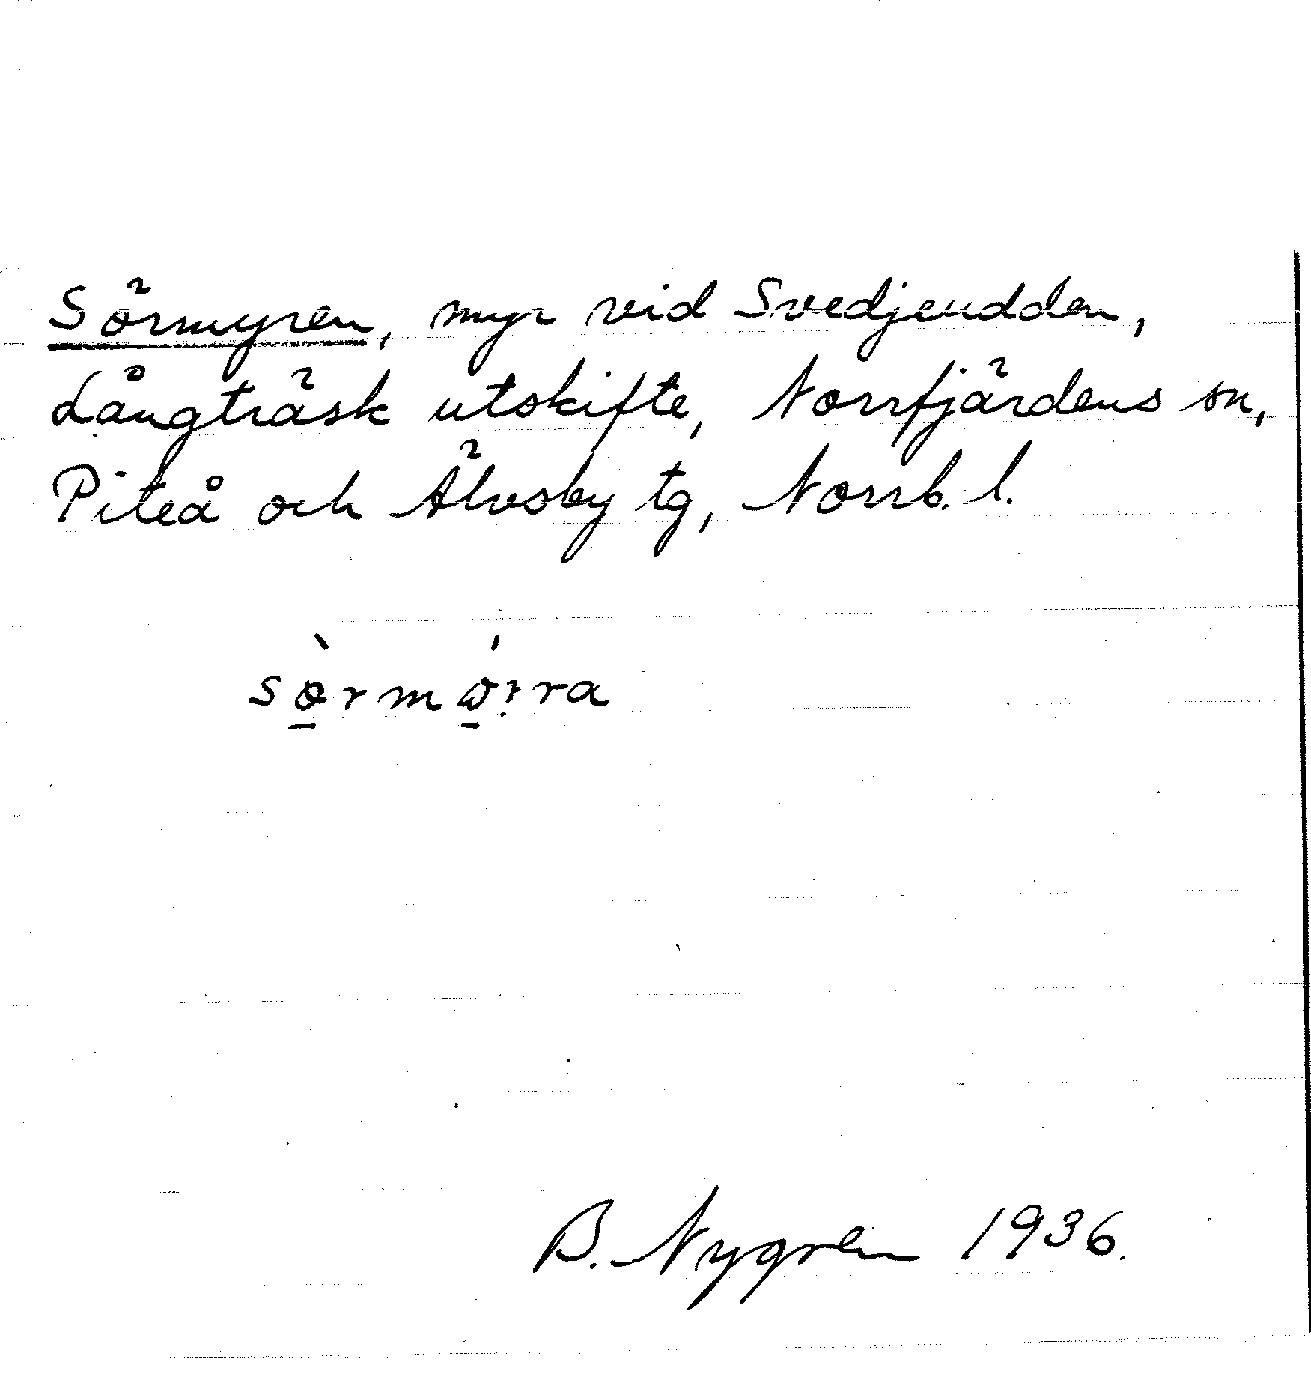 Sörmyren, myr vid Svedjeudden,
Långträsk utskifte, Norrfjärdens sn,
Piteå och Älvsby tg, Norrb. l.
B. Nygren 1936.